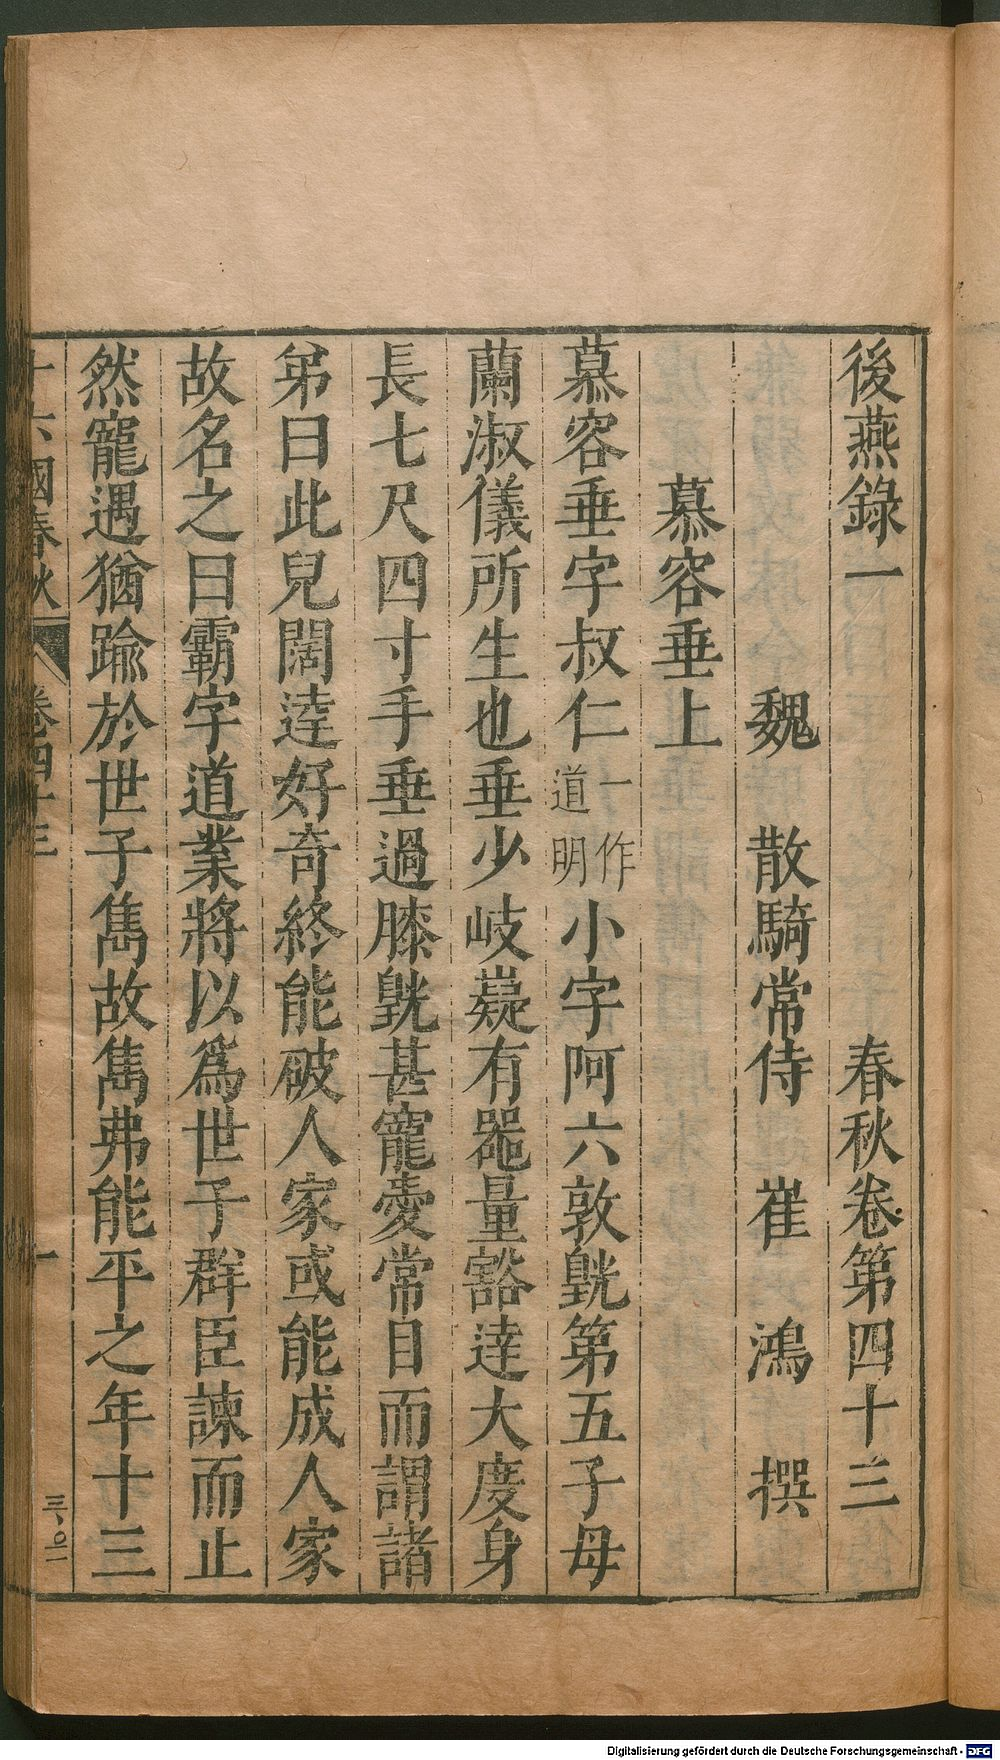 後燕錄一　春秋卷第四十三
魏　散騎常侍　崔　鴻　撰
慕容垂上
慕容垂字叔仁一作道明小字阿六敦皝第五子母
蘭淑儀所生也垂少岐嶷有器量豁達大度身
長七尺四寸手垂過膝皝甚寵愛常目而謂諸
弟曰此兒闊達好奇終能破人家或能成人家
故名之曰霸字道業將以為世子群臣諫而止
然寵遇猶踰於世子雋故雋弗能平之年十三
十六國春秋　卷四十三　一
Digitalisierung gefördert durch die Deutsche Forschungsgemeinschaft - DFG